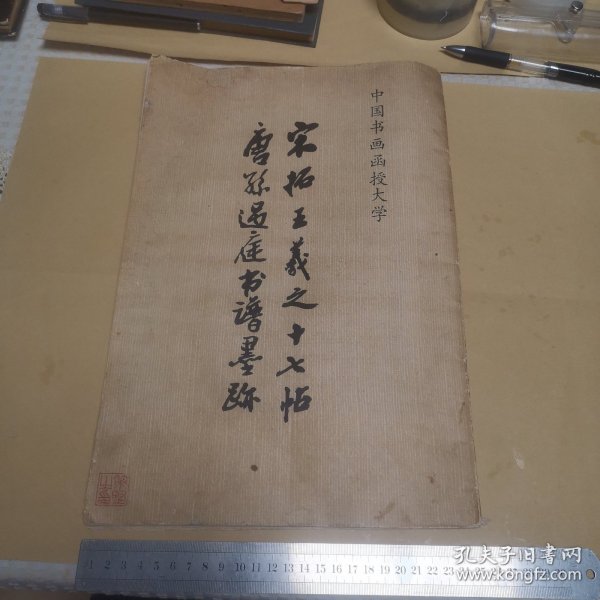 中国书画函授大学
宋拓王羲之十七帖
唐孙过庭书谱墨跡
1 2 3 4 5 6 7 8 9 10 11 12 13 14 15 16 17 18 19 20 21 22 23 24 25
孔夫子旧书网
www.kongfz.com